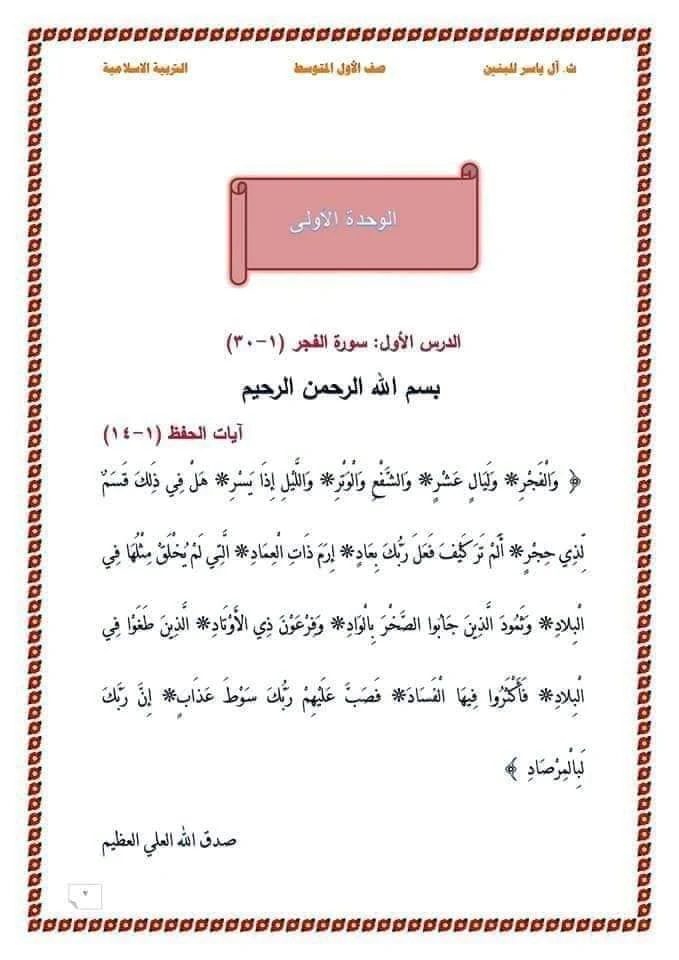 ث. آل ياسر للبنين صف الأول المتوسط التربية الاسلامية
الوحدة الأولى
الدرس الأول: سورة الفجر (١-٣٠)
بسم الله الرحمن الرحيم
آيات الحفظ (١-١٤)
﴿ وَالْفَجْرِ* وَلَيَالٍ عَشْرٍ* وَالشَّفْعِ وَالْوَتْرِ* وَاللَّيْلِ إِذَا يَسْرِ* هَلْ فِي ذَلِكَ قَسَمٌ
لِّذِي حِجْرٍ* أَلَمْ تَرَ كَيْفَ فَعَلَ رَبُّكَ بِعَادٍ* إِرَمَ ذَاتِ الْعِمَادِ* الَّتِي لَمْ يُخْلَقْ مِثْلُهَا فِي
الْبِلَادِ* وَثَمُودَ الَّذِينَ جَابُوا الصَّخْرَ بِالْوَادِ* وَفِرْعَوْنَ ذِي الْأَوْتَادِ* الَّذِينَ طَغَوْا فِي
الْبِلَادِ* فَأَكْثَرُوا فِيهَا الْفَسَادَ* فَصَبَّ عَلَيْهِمْ رَبُّكَ سَوْطَ عَذَابٍ* إِنَّ رَبَّكَ
لَبِالْمِرْصَادِ ﴾
صدق الله العلي العظيم
٢